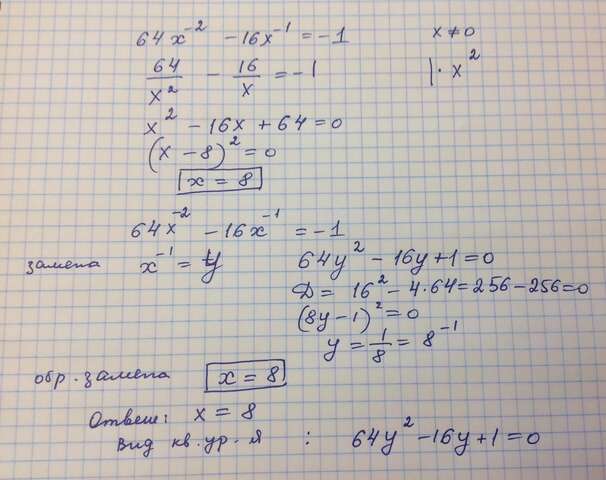 64x⁻² - 16x⁻¹ = -1 x ≠ 0
64/x² - 16/x = -1 |· x²
x² - 16x + 64 = 0
(x - 8)² = 0
x = 8
64x⁻² - 16x⁻¹ = -1
замена x⁻¹ = y 64y² - 16y + 1 = 0
D = 16² - 4·64 = 256 - 256 = 0
(8y - 1)² = 0
y = 1/8 = 8⁻¹
обр. замена x = 8
Ответ: x = 8
Вид кв. ур. я : 64y² - 16y + 1 = 0